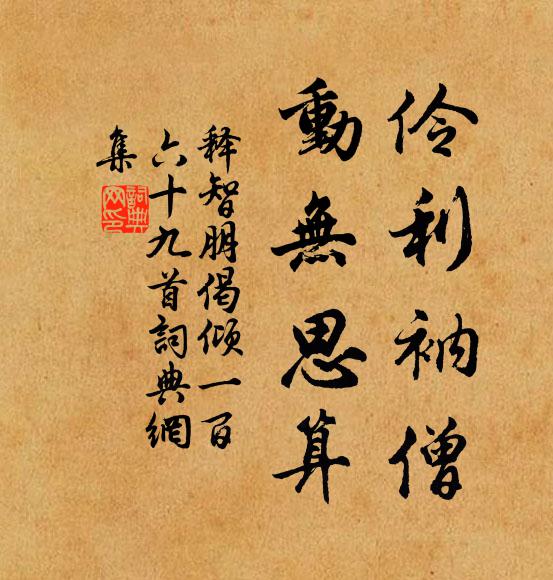 伶利衲僧
動無思算
释智朋偈倾一百
六十九首詞典網
集
詞典網印